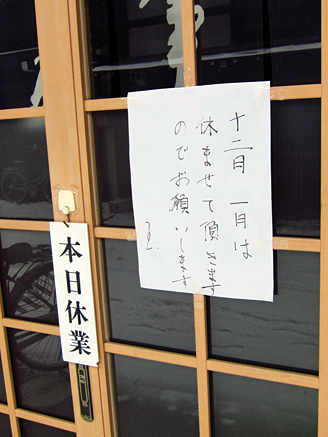 十二月 一月は
休ませて頂きます
のでお願いします
本日休業